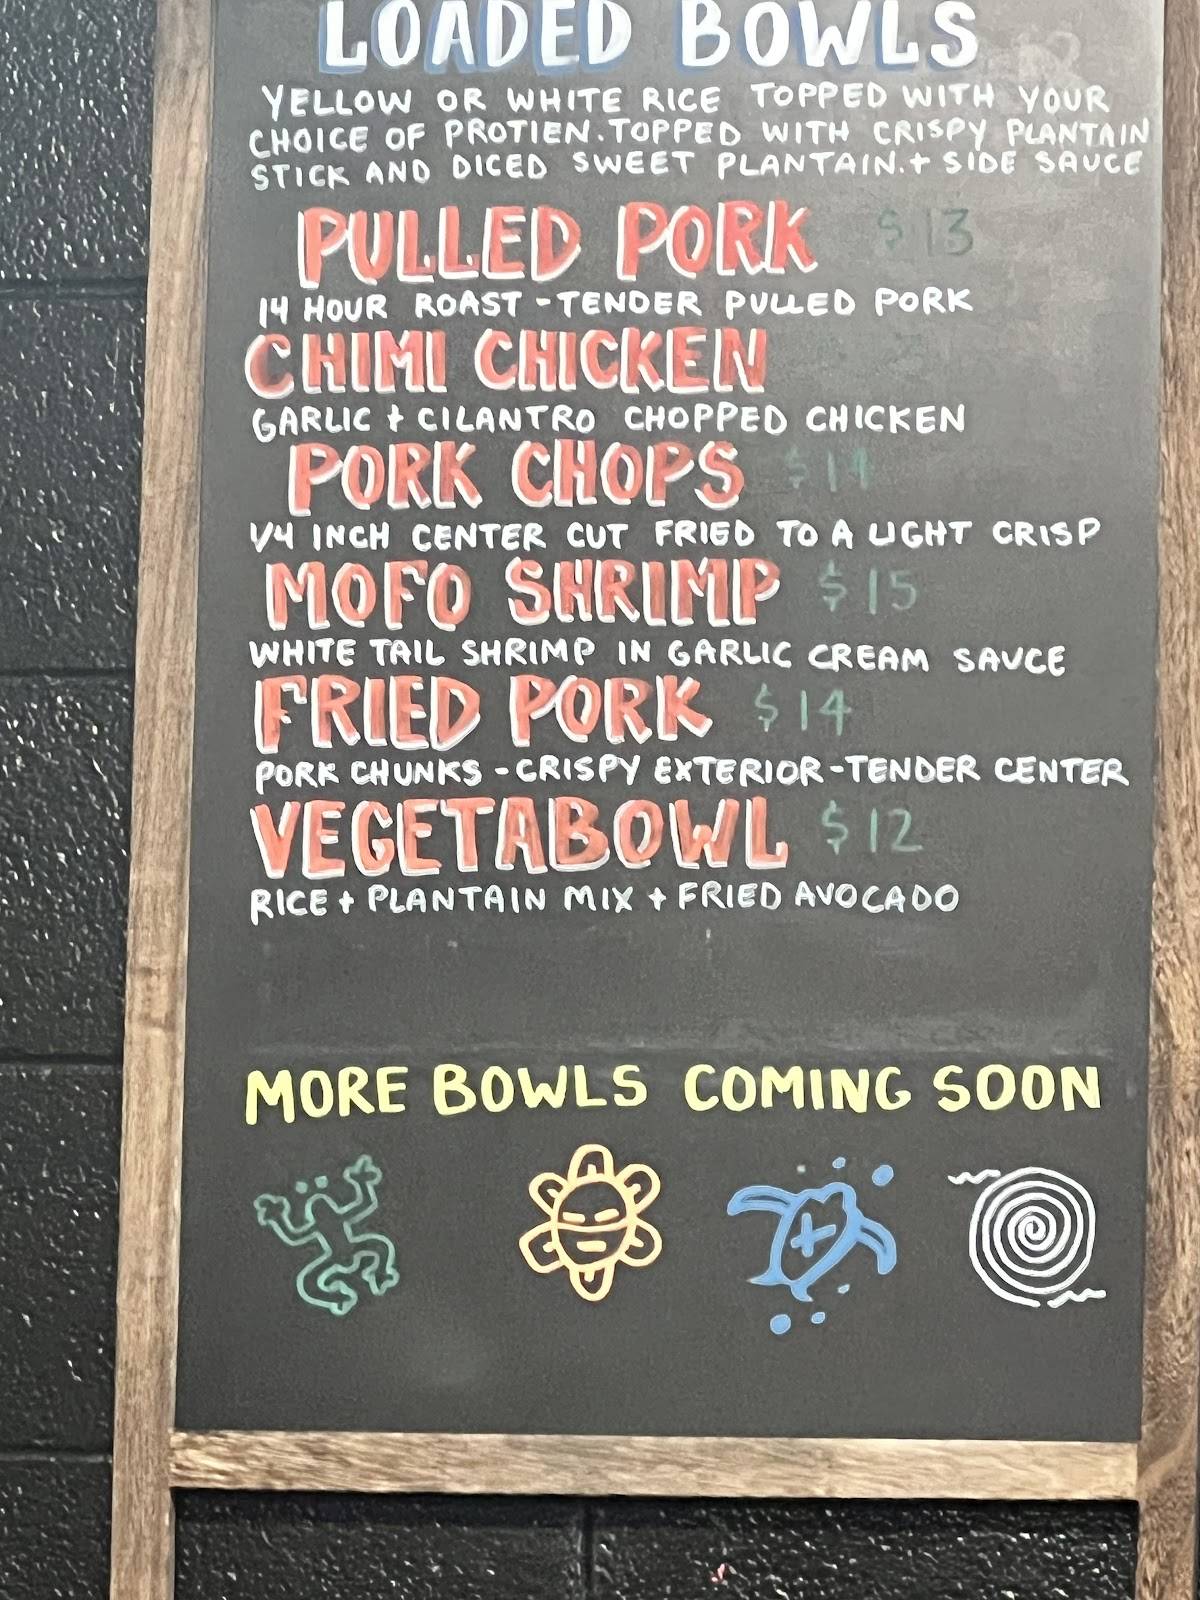 LOADED BOWLS
YELLOW OR WHITE RICE TOPPED WITH YOUR
CHOICE OF PROTIEN. TOPPED WITH CRISPY PLANTAIN
STICK AND DICED SWEET PLANTAIN. + SIDE SAUCE
PULLED PORK $13
14 HOUR ROAST - TENDER PULLED PORK
CHIMI CHICKEN
GARLIC + CILANTRO CHOPPED CHICKEN
PORK CHOPS $14
1/4 INCH CENTER CUT FRIED TO A LIGHT CRISP
MOFO SHRIMP $15
WHITE TAIL SHRIMP IN GARLIC CREAM SAUCE
FRIED PORK $14
PORK CHUNKS - CRISPY EXTERIOR - TENDER CENTER
VEGETABOWL $12
RICE + PLANTAIN MIX + FRIED AVOCADO
MORE BOWLS COMING SOON